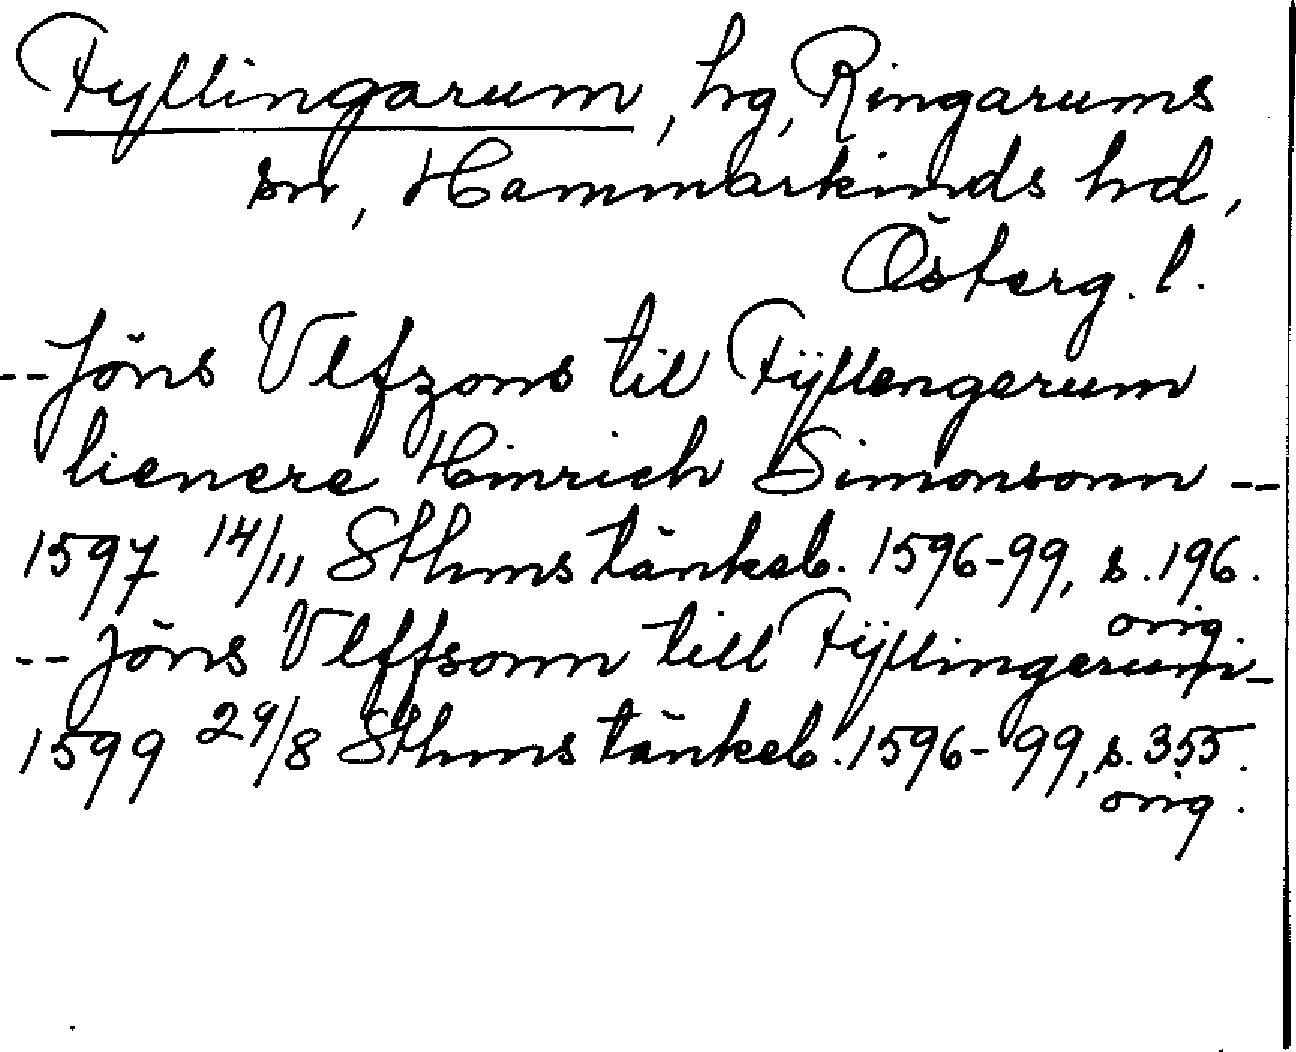 Fyllingarum, hg, Ringarums
sn, Hammarkinds hd,
Österg. l.
--Jöns Vlfzons til Fÿllengerum
lienere Hinrich Simonsonn --
1597 14/11 Sthms tänkeb. 1596-99, s. 196.
orig.
--Jöns Vlffsonn till Fÿllingerum-
1599 29/8 Sthms tänkeb. 1596-99, s. 355.
orig.